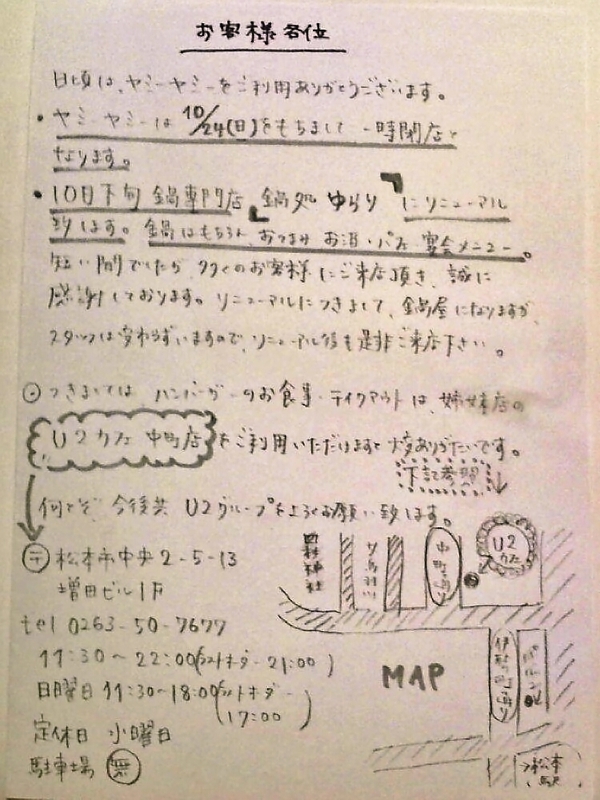 お客様各位
日頃は、ヤミーヤミーをご利用ありがとうございます。
・ヤミーヤミーは 10/24(日)をもちまして 一時閉店と
なります。
・10日下旬 鍋専門店「鍋処 ゆらり」にリニューアル
致します。鍋はもちろん、おつまみ お酒・パフェ・宴会メニュー。
短い間でしたが 多くのお客様にご来店頂き、誠に
感謝しております。リニューアルにつきまして、鍋屋になりますが、
スタッフは変わらずいますので、リニューアル後も是非ご来店下さい。
⊙つきましては ハンバーガーのお食事・テイクアウトは、姉妹店の
U2カフェ 中町店をご利用いただけますと 大変ありがたいです。
下記参照
何とぞ、今後共 U2グループをよろしくお願い致します。
〒松本市中央2-5-13
増田ビル1F
tel 0263-50-7677
11:30〜22:00(ラストオーダー21:00)
日曜日 11:30〜18:00(ラストオーダー
17:00)
定休日 水曜日
駐車場 無
四柱神社
女鳥羽川
中町通り
U2
カフェ
MAP
伊勢町通り
パルコ
松本
駅